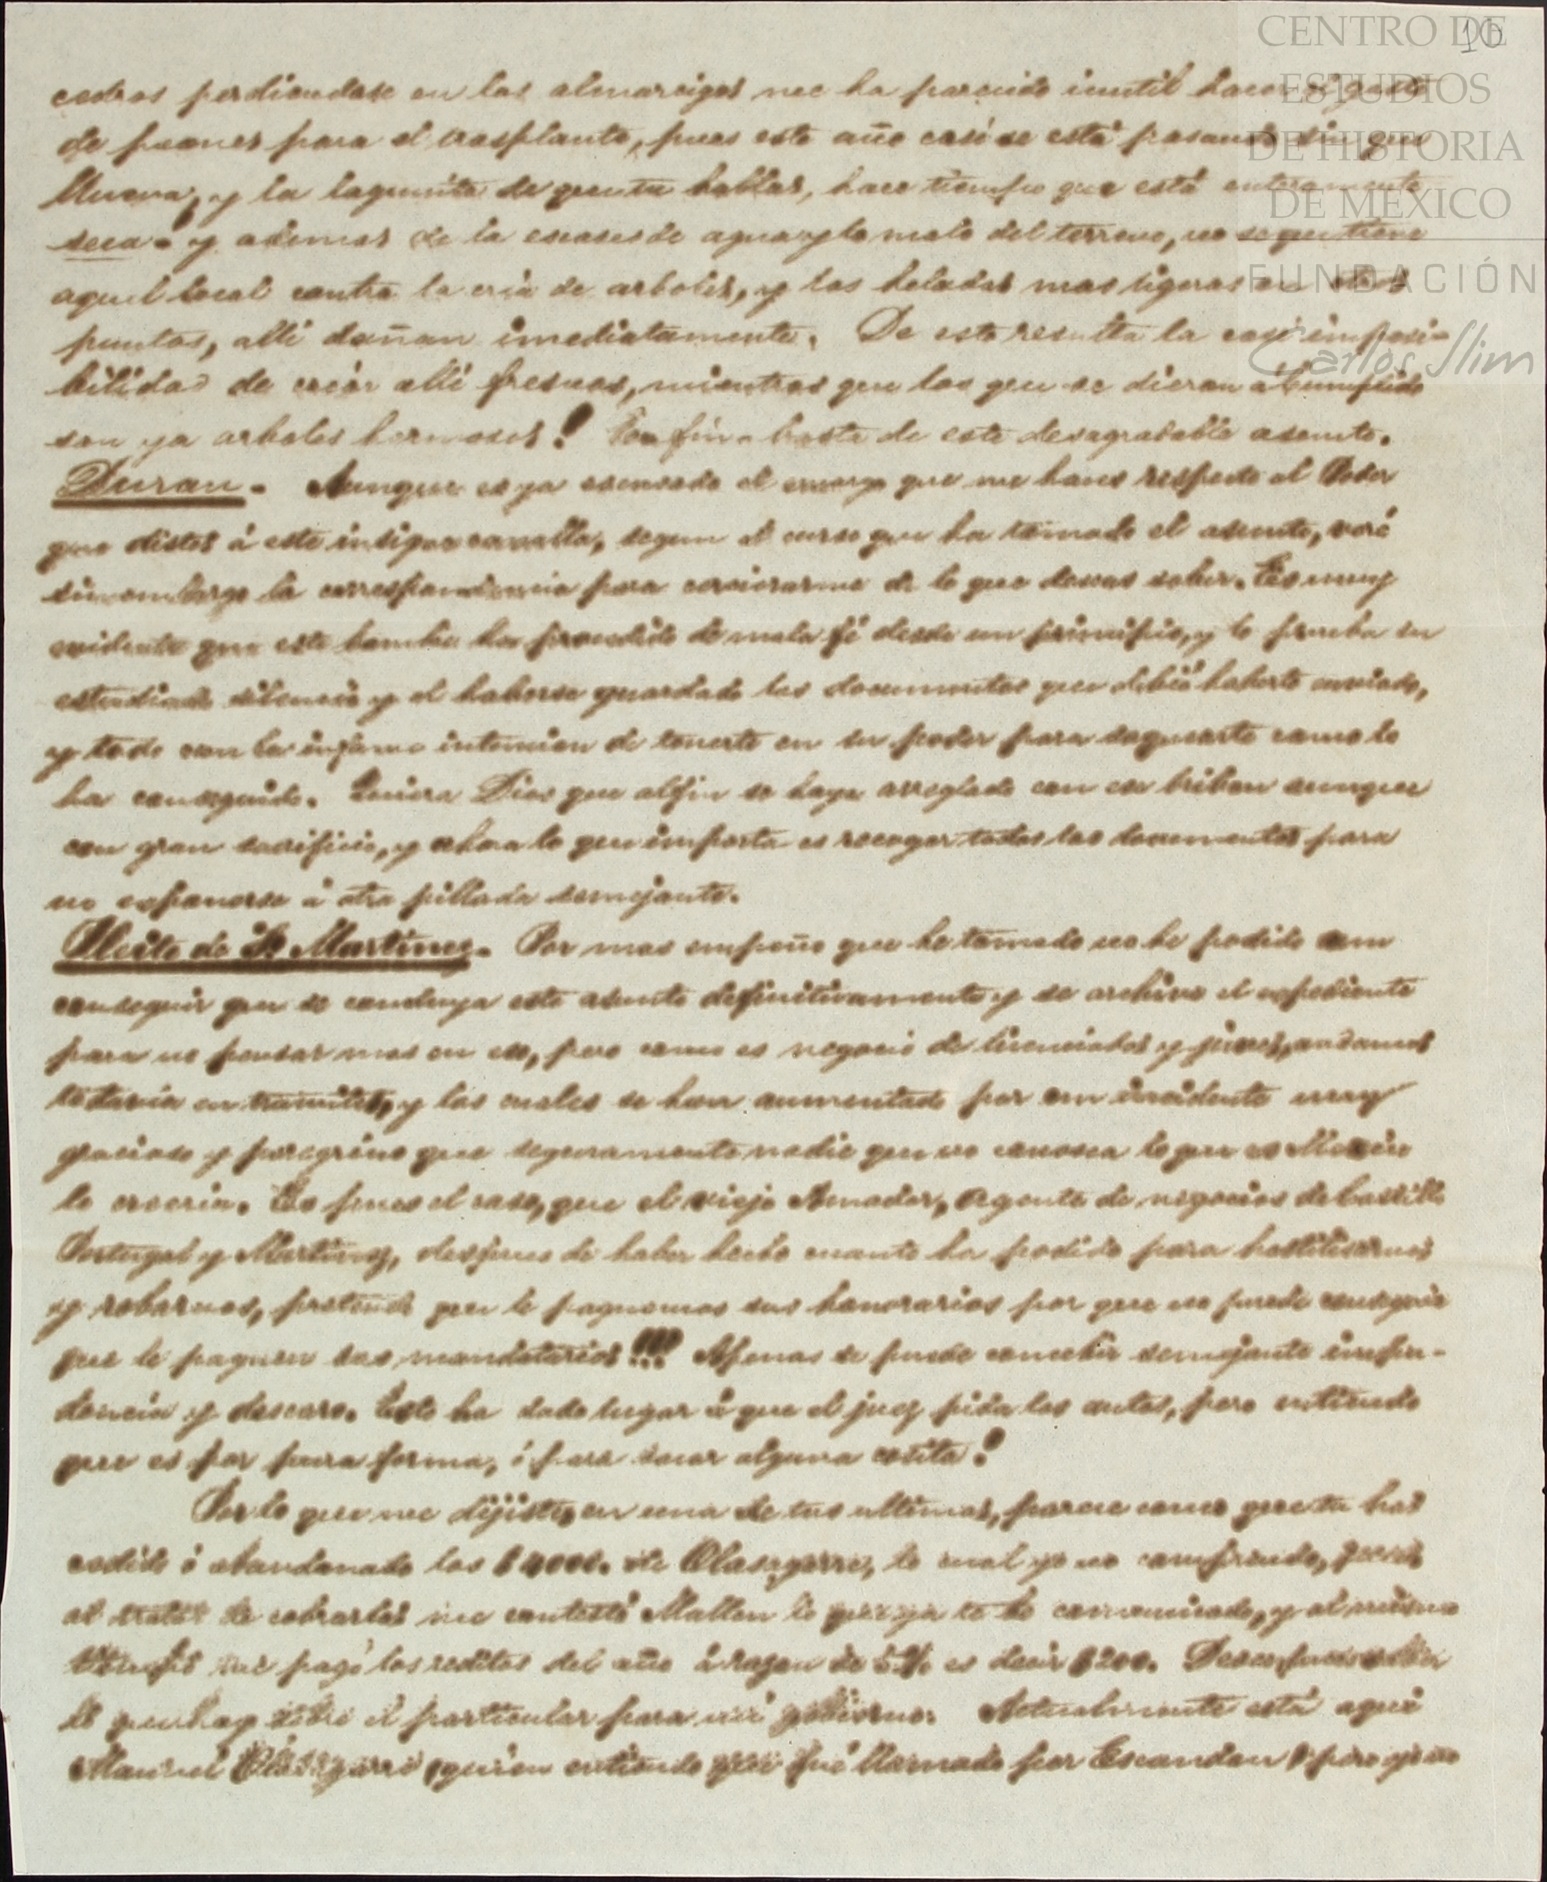 16
CENTRO DE
ESTUDIOS
DE HISTORIA
DE MÉXICO
FUNDACIÓN
Carlos Slim
cedros perdiendose en los almacigos me ha parecido inutil hacer el gasto
de peones para el trasplante, pues este año casi se está pasando sin que
llueva, y la lagunita de que tu hablas, hace tiempo que está enteramente
seca. y ademas de la escases de agua y lo malo del terreno, no se que tiene
aquel local contra la cria de arboles, y las heladas mas ligeras en otros
puntos, alli dañan imediatamente. De esto resulta la casi imposi-
bilidad de criar alli fresnos, mientras que los que se dieron a
son ya arboles hermosos! En fin basta de este desagradable asunto.
Duran. Aunque es ya escusado el encargo que me haces respecto al Poder
que distes á este insigne canalla, segun el curso que ha tomado el asunto, veré
sin embargo la correspondencia para cerciorarme de lo que deseas saber. Es muy
evidente que este hombre ha procedido de mala fé desde un principio, y lo prueba su
estudiado silencio y el haberse guardado los documentos que debió haberte enviado,
y todo con la infame intencion de tenerte en su poder para saquearte como lo
ha conseguido. Quiera Dios que al fin se haya arreglado con ese bribon aunque
con gran sacrificio, y ahora lo que importa es recoger todos los documentos para
no exponerse á otra pillada semejante.
Pleito de S. Martinez. Por mas empeño que he tomado no he podido aun
conseguir que se concluya este asunto definitivamente y se archive el expediente
para no pensar mas en eso, pero como es negocio de licenciados y jueces, andamos
todavia en tramites, y los cuales se han aumentado por un incidente muy
gracioso y peregrino que seguramente nadie que no conosca lo que es Mexico
lo creeria. Es pues el caso, que el viejo Amador, agente de negocios de Castillo
Portugal y Martinez, despues de haber hecho cuanto ha podido para hostilisarnos
y robarnos, pretende que le paguemos sus honorarios por que no puede conseguir
que le paguen sus mandatarios!!! Apenas se puede concebir semejante impu-
dencia y descaro. Esto ha dado lugar á que el juez pida los autos, pero entiendo
que es por pura forma, ó para sacar alguna cosita!
Por lo que me dijiste, en una de tus ultimas, parece como que tu has
cedido ó abandonado los $4000. de Olasagarre, lo cual yo no comprendo, pues
al tratar de cobrarlos me contestó Mallen lo que ya te he comunicado, y al mismo
tiempo me pagó los reditos del año á razon de 5.% es decir $200. Deseo pues saber
lo que hay sobre el particular para mi gobierno. Actualmente está aqui
Manuel Olasagarre, quien entiendo que fué llamado por Escandon, pero yo no